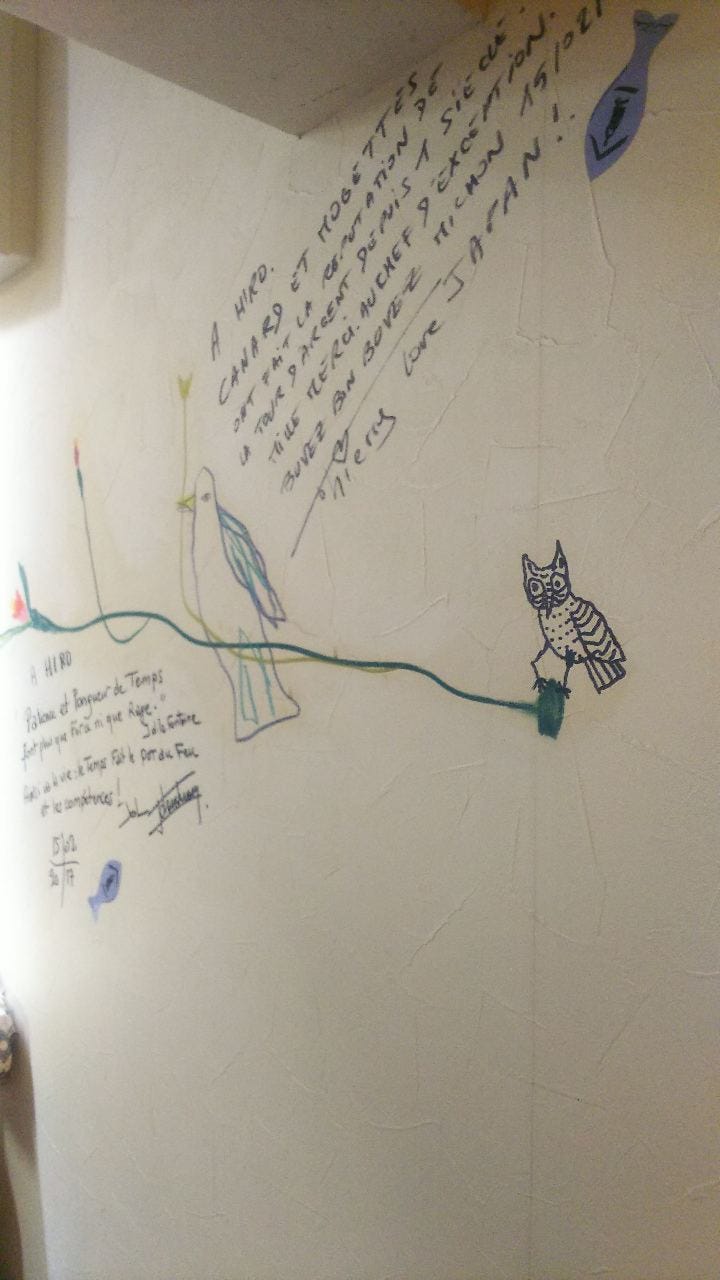 A HIRO.
CANARD ET MOGETTES
ONT FAIT LA REPUTATION DE
LA TOUR D'ARGENT DEPUIS 1 SIÈCLE.
MILLE MERCI. AU CHEF D'EXCEPTION.
BUVEZ BON BUVEZ MICHON 15/02/
Love JAPAN!!
A HIRO
"Patience et longueur de Temps
font plus que Force ni que Rage."
J de la Fontaine
la vie : le Temps Fait le Pot au Feu
et les compétences !
15/02
20 17